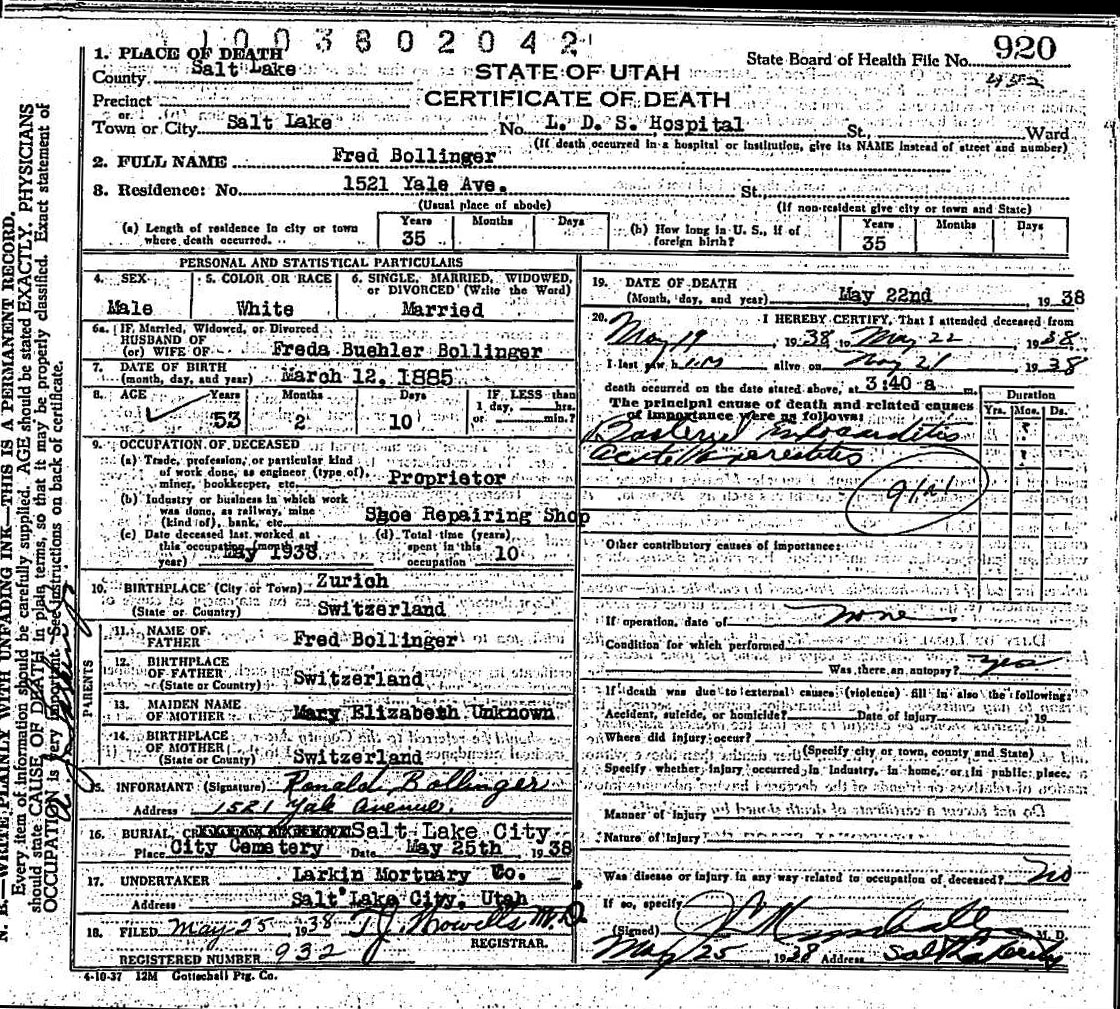 1003802042
1. PLACE OF DEATH
State Board of Health File No. 920
County Salt Lake
STATE OF UTAH
452
Precinct
CERTIFICATE OF DEATH
or
Town or City Salt Lake No. L. D. S. Hospital St., Ward
(If death occurred in a hospital or institution, give its NAME instead of street and number)
2. FULL NAME Fred Bollinger
3. Residence: No. 1521 Yale Ave. St.,
(Usual place of abode) (If non-resident give city or town and State)
(a) Length of residence in city or town where death occurred. Years 35 Months Days
(b) How long in U. S., if of foreign birth? Years 35 Months Days
PERSONAL AND STATISTICAL PARTICULARS
4. SEX Male
5. COLOR OR RACE White
6. SINGLE, MARRIED, WIDOWED, or DIVORCED (Write the Word) Married
6a. IF Married, Widowed, or Divorced
HUSBAND OF
(or) WIFE OF Freda Buehler Bollinger
7. DATE OF BIRTH
(month, day, and year) March 12, 1885
8. AGE Years 53 Months 2 Days 10 IF LESS than 1 day, hrs. or min.?
9. OCCUPATION OF DECEASED
(a) Trade, profession, or particular kind
of work done, as engineer (type of),
miner, bookkeeper, etc. Proprietor
(b) Industry or business in which work
was done, as railway, mine
(kind of), bank, etc. Shoe Repairing Shop
(c) Date deceased last worked at
this occupation (month year) May 1938
(d) Total time (years)
spent in this
occupation 10
10. BIRTHPLACE (City or Town) Zurich
(State or Country) Switzerland
PARENTS
11. NAME OF
FATHER Fred Bollinger
12. BIRTHPLACE
OF FATHER
(State or Country) Switzerland
13. MAIDEN NAME
OF MOTHER Mary Elizabeth Unknown
14. BIRTHPLACE
OF MOTHER
(State or Country) Switzerland
15. INFORMANT (Signature) Ronald Bollinger
Address 1521 Yale Avenue.
16. BURIAL, Salt Lake City
Place City Cemetery Date May 25th 1938
17. UNDERTAKER Larkin Mortuary Co.
Address Salt Lake City, Utah
18. FILED May 25 1938 T.J. Howells M.D.
REGISTRAR.
REGISTERED NUMBER 932
4-10-37 12M Gottschall Ptg. Co.
19. DATE OF DEATH
(Month, day, and year) May 22nd, 1938
20. I HEREBY CERTIFY, That I attended deceased from
May 19, 1938, to May 22, 1938
I last saw him alive on May 21 1938
death occurred on the date stated above, at 3:40 a m.
Duration
Yrs. Mos. Ds.
The principal cause of death and related causes
of importance were as follows:
Endocarditis
Acute
Other contributory causes of importance:
If operation, date of none
Condition for which performed
Was there an autopsy? yes
If death was due to external causes (violence) fill in also the following:
Accident, suicide, or homicide? Date of injury, 19
Where did injury occur?
(Specify city or town, county and State)
Specify whether injury occurred in industry, in home, or in public place,
Manner of injury
Nature of injury
Was disease or injury in any way related to occupation of deceased? no
If so, specify
(Signed) M. D.
May 25 1938 Address Salt Lake City
N. B.—WRITE PLAINLY WITH UNFADING INK—THIS IS A PERMANENT RECORD.
Every item of information should be carefully supplied. AGE should be stated EXACTLY. PHYSICIANS
should state CAUSE OF DEATH in plain terms, so that it may be properly classified. Exact statement of
OCCUPATION is very important. See instructions on back of certificate.